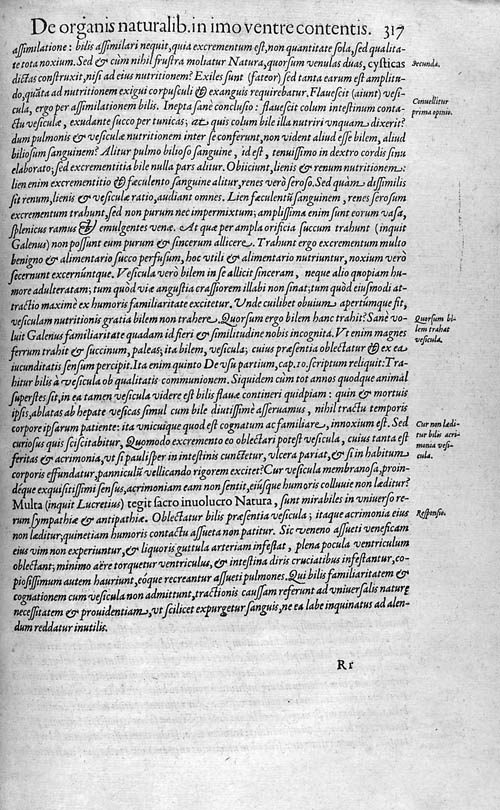 De organis naturalib. in imo ventre contentis. 317
assimilatione: bilis assimilari nequit, quia excrementum est, non quantitate sola, sed qualita-
te tota noxium. Sed & cum nihil frustra moliatur Natura, quorsum venulas duas, cysticas
dictas construxit, nisi ad eius nutritionem? Exiles sunt (fateor) sed tanta earum est amplitu-
do, quāta ad nutritionem exigui corpusculi & exanguis requirebatur. Flauescit (aiunt) vesi-
cula, ergo per assimilationem bilis. Inepta sanè conclusio: flauescit colum intestinum conta-
ctu vesiculæ, exudante succo per tunicas; at quis colum bile illa nutriri vnquam dixerit?
dum pulmonis & vesiculæ nutritionem inter se conferunt, non vident aliud esse bilem, aliud
biliosum sanguinem? Alitur pulmo bilioso sanguine, id est, tenuissimo in dextro cordis sinu
elaborato; sed excrementitia bile nulla pars alitur. Obiiciunt, lienis & renum nutritionem:
lien enim excrementitio & fæculento sanguine alitur, renes verò seroso. Sed quàm dissimilis
sit renum, lienis & vesiculæ ratio, audiant omnes. Lien fæculentū sanguinem, renes serosum
excrementum trahunt, sed non purum nec impermixtum; amplissima enim sunt eorum vasa,
splenicus ramus & emulgentes venæ. At quæ per ampla orificia succum trahunt (inquit
Galenus) non possunt eum purum & sincerum allicere. Trahunt ergo excrementum multo
benigno & alimentario succo perfusum, hoc vtili & alimentario nutriuntur, noxium verò
secernunt excernúntque. Vesicula verò bilem in se allicit sinceram, neque alio quopiam hu-
more adulteratam; tum quòd viæ angustia crassiorem illabi non sinat; tum quòd eiusmodi at-
tractio maximè ex humoris familiaritate excitetur. Vnde cuilibet obuium apertúmque sit,
vesiculam nutritionis gratia bilem non trahere. Quorsum ergo bilem hanc trahit? Sanè vo-
luit Galenus familiaritate quadam id fieri & similitudine nobis incognita. Vt enim magnes
ferrum trahit & succinum, paleas; ita bilem, vesicula; cuius præsentia oblectatur & ex ea
iucunditatis sensum percipit. Ita enim quinto De vsu partium, cap. 10. scriptum reliquit: Tra-
hitur bilis à vesicula ob qualitatis communionem. Siquidem cum tot annos quodque animal
superstes sit, in ea tamen vesicula videre est bilis flauæ contineri quidpiam: quin & mortuis
ipsis, ablatas ab hepate vesicas simul cum bile diutissimè asseruamus, nihil tractu temporis
corpore ipsarum patiente: ita vnicuique quod est cognatum ac familiare, innoxium est. Sed
curiosus quis sciscitabitur, Quomodo excremento eo oblectari potest vesicula, cuius tanta est
feritas & acrimonia, vt si paulisper in intestinis cunctetur, vlcera pariat, & si in habitum
corporis effundatur, panniculū vellicando rigorem excitet? Cur vesicula membranosa, proin-
déque exquisitissimi sensus, acrimoniam eam non sentit, eiúsque humoris colluuie non læditur?
Multa (inquit Lucretius) tegit sacro inuolucro Natura, sunt mirabiles in vniuerso re-
rum sympathiæ & antipathiæ. Oblectatur bilis præsentia vesicula; itaque acrimonia eius
non læditur, quinetiam humoris contactu assueta non patitur. Sic veneno assueti veneficam
eius vim non experiuntur, & liquoris guttula arteriam infestat, plena pocula ventriculum
oblectant; minimo aëre torquetur ventriculus, & intestina diris cruciatibus infestantur, co-
piosissimum autem hauriunt, eóque recreantur assueti pulmones. Qui bilis familiaritatem &
cognationem cum vesicula non admittunt, tractionis caussam referunt ad vniuersalis naturę
necessitatem & prouidentiam, vt scilicet expurgetur sanguis, ne ea labe inquinatus ad alen-
dum reddatur inutilis.
Secunda.
Conuellitur
prima opinio.
Quorsum bi-
lem trahat
vesicula.
Cur non lædi-
tur bilis acri-
monia vesi-
cula.
Responsio.
Rr